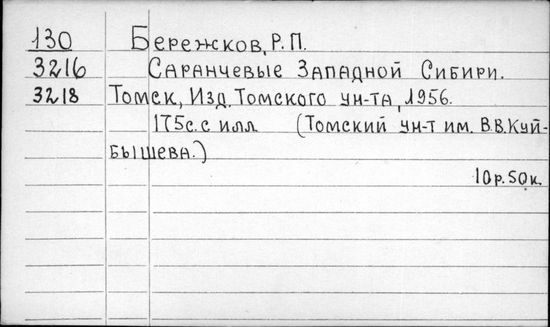 130 Бережков, Р.П.
3216 Саранчевые Западной Сибири.
3218 Томск, Изд. Томского ун-та, 1956.
175с. с илл (Томский ун-т им. В.В.Куй-
бышева.)
10р.50к.